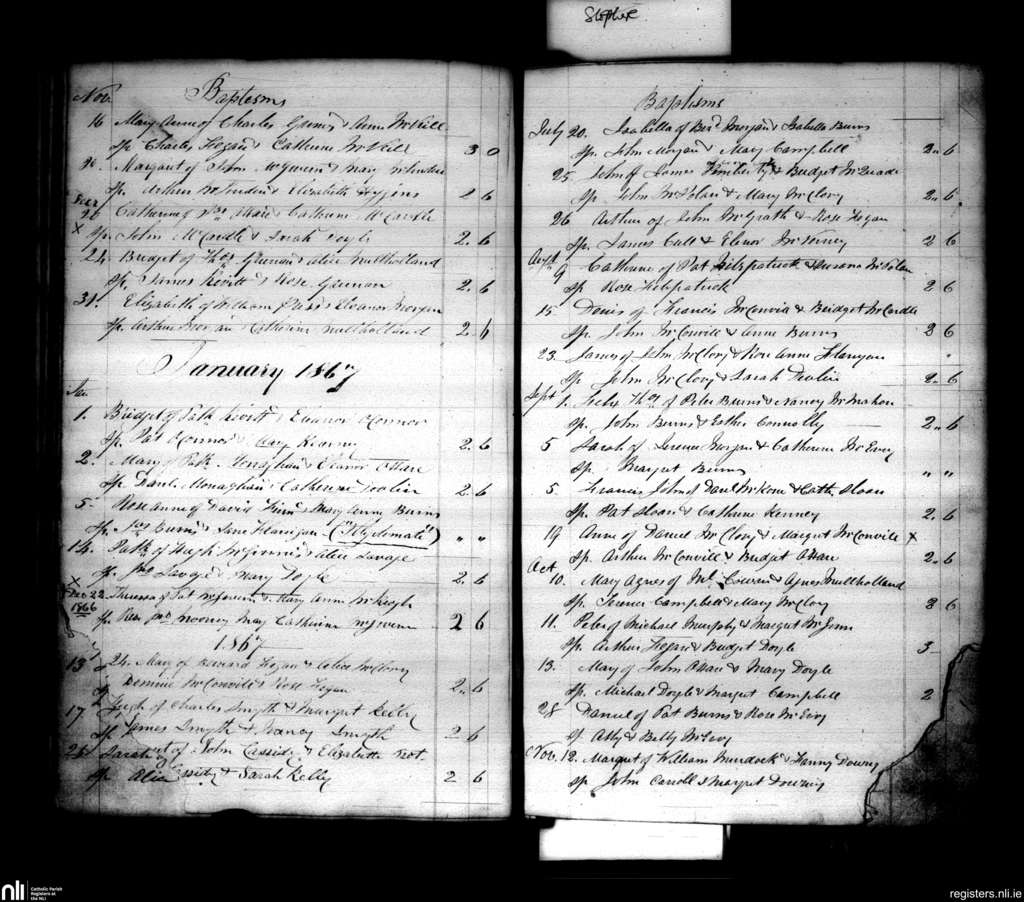 Stephie
Nov. Baptisms
16 Mary Anne of Charles & Anne McKill
Sp. Charles Hogan & Catherine McKill 3 0
Margaret of John McGivern & Mary
Sp. Arthur & Elizabeth Higgins 2 6
Decr
20 Catherine of OHare & Catherine McCardle
X Sp. John McCardle & Sarah Doyle 2. 6
24 Bridget of Thos Grennan & Alice Mullholland
Sp. James Kevitt & Rose Grennan 2. 6
31. Elizabeth of William & Eleanor Morgan
Sp. Arthur Morgan & Catherine Mullholland 2. 6
January 1867
Jan.
1. Bridget of Patk Kevitt & Eleanor OConnor
Sp. Pat OConnor & Mary Kearny 2. 6
2. Mary of Patk Monaghan & Eleanor OHare
Sp. Danl Monaghan & Catherine 2. 6
5 Rose anne of David Finn & Mary Anne Burns
Sp. Jas Burns & Jane Flanigan (Illegitimate) " "
14. Patk of Hugh McGinnis & Alice Savage
Sp. Jno Savage & Mary Doyle 2. 6
X
Dec 22 Theresa of Pat McGivern & Mary Anne McKeogh
1866 Sp. Rev Jno Mooney Mary Catherine McGivern 2 6
1867
13 24. Mary of Edward Hogan & Alice McClory
Sp. Dominic McConville & Rose Hogan 2.. 6
17. Hugh of Charles Smyth & Margret Kelly
Sp. James Smyth & Nancy Smyth 2 6
Sarah of John Cassidy & Elizabeth
Sp. Alice Cassidy & Sarah Kelly 2 6
Baptisms
July 20. Isabella of Bernd Morgan & Isabella Burns
Sp. John Morgan & Mary Campbell 2.. 6
25 John of James Kimberly & Bridget McQuade
Sp. John McPolan & Mary McClory 2.. 6
26 Arthur of John McGrath & Rose Hogan
Sp. James & Elenor McKerney 2 6
Augt 9 Catherine of Pat Kilpatrick & Susana McPolan
Sp. Rose Kilpatrick 2 6
15. Denis of Francis McConvill & Bridget McCardle
Sp. John McConvill & Anne Burns 2 6
23. James of John McClory & Rose Anne Flanigan "
Sp. John McClory & Sarah Devlin 2.. 6
Sept 1. Thos of Peter Burns & Nancy McMahon
Sp. John Burns & Esther Connolly 2.. 6
5 Sarah of Terence Morgan & Catherine McEvoy
Sp. Margret Burns " "
5. Francis John of Danl McKone & Cath. Sloan
Sp. Pat Sloan & Catherine Kenney 2. 6
19 Anne of Daniel McClory & Margret McConvill X
Sp. Arthur McConvill & Bridget OHare 2.. 6
Oct
10. Mary Agnes of Ml. Cowan & Agnes Mullholland
Sp. Terence Campbell & Mary McClory 2 6
11. Peter of Michael Murphy & Margret McGinn
Sp. Arthur Hogan & Bridget Doyle 3 -
13. Mary of John OHare & Mary Doyle
Sp. Michael Doyle & Margret Campbell 2
28 Daniel of Pat Burns & Rose McEvoy
Sp. & Betty McEvoy
Nov. 12. Margret of William Murdock & Fanny Downey
Sp. John Carroll & Margret Downey
nli Catholic Parish Registers at the NLI
registers.nli.ie